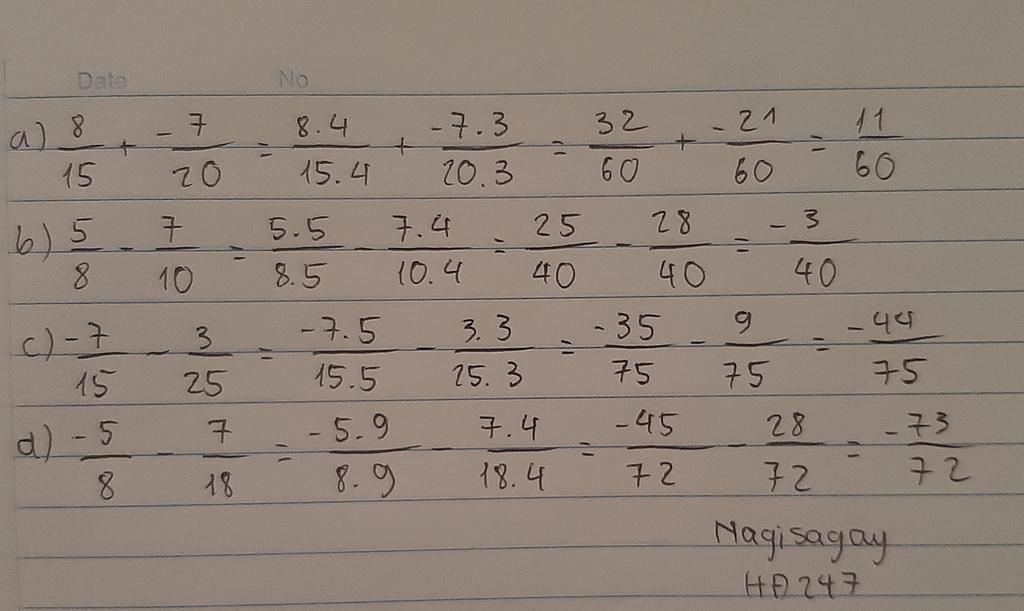 Date No
a) 8/15 + -7/20 = 8.4/15.4 + -7.3/20.3 = 32/60 + -21/60 = 11/60
b) 5/8 - 7/10 = 5.5/8.5 - 7.4/10.4 = 25/40 - 28/40 = -3/40
c) -7/15 - 3/25 = -7.5/15.5 - 3.3/25.3 = -35/75 - 9/75 = -44/75
d) -5/8 - 7/18 = -5.9/8.9 - 7.4/18.4 = -45/72 - 28/72 = -73/72
Nagisagay
HĐ247